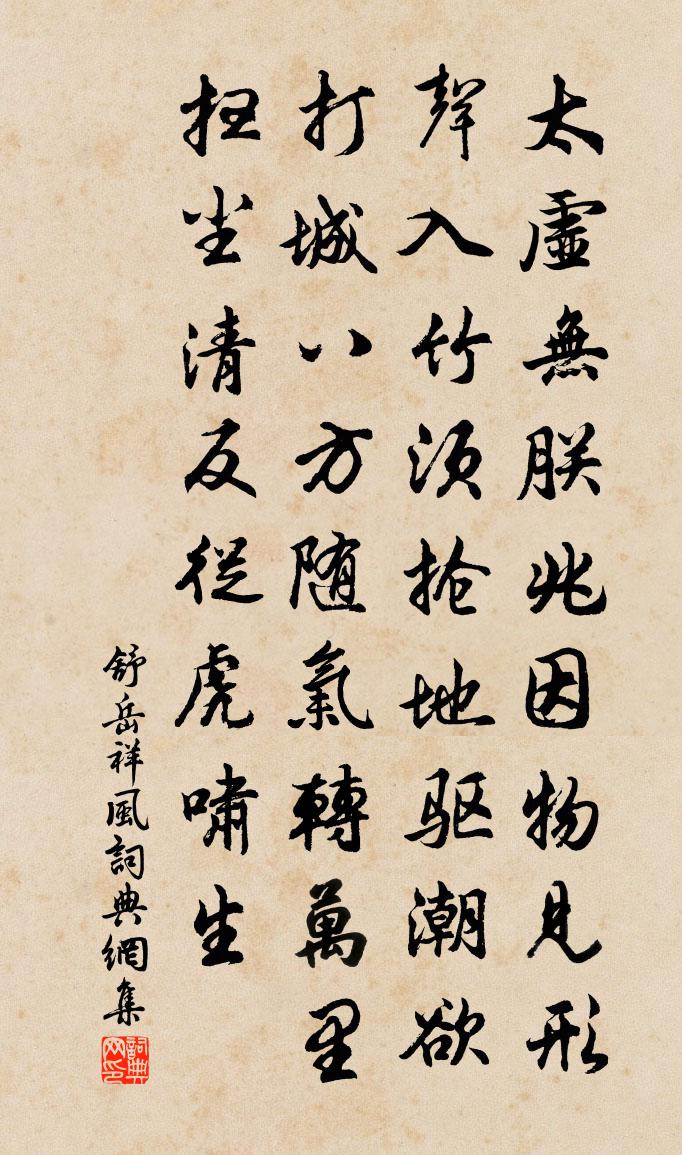 太虛無朕兆因物見形
聲入竹須搶地驅潮欲
打城八方随氣轉萬里
扫尘清反從虎嘯生
舒岳祥風詞典網集
詞典网印